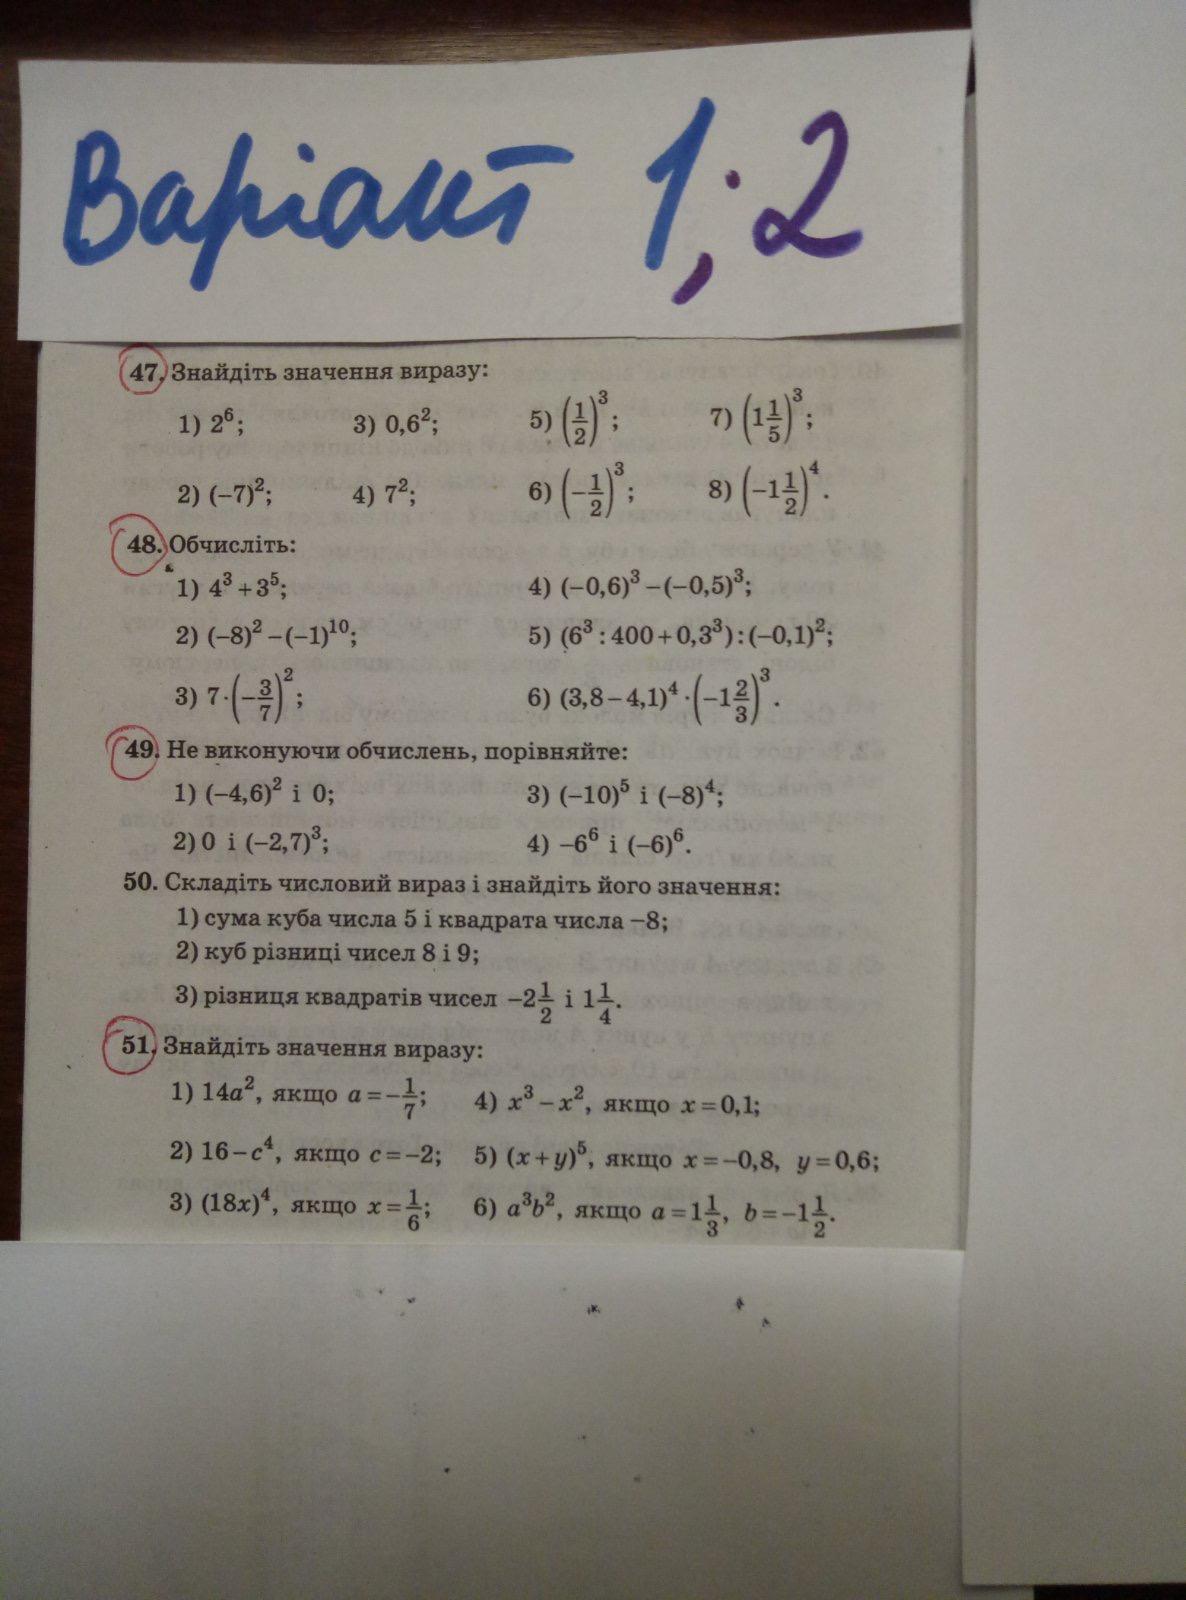 Варіант 1; 2
47. Знайдіть значення виразу:
1) 2⁶; 3) 0,6²; 5) (1/2)³; 7) (1 1/5)³;
2) (−7)²; 4) 7²; 6) (−1/2)³; 8) (−1 1/2)⁴.
48. Обчисліть:
1) 4³ + 3⁵; 4) (−0,6)³ − (−0,5)³;
2) (−8)² − (−1)¹⁰; 5) (6³ : 400 + 0,3³) : (−0,1)²;
3) 7 · (−3/7)²; 6) (3,8 − 4,1)⁴ · (−1 2/3)³.
49. Не виконуючи обчислень, порівняйте:
1) (−4,6)² і 0; 3) (−10)⁵ і (−8)⁴;
2) 0 і (−2,7)³; 4) −6⁶ і (−6)⁶.
50. Складіть числовий вираз і знайдіть його значення:
1) сума куба числа 5 і квадрата числа −8;
2) куб різниці чисел 8 і 9;
3) різниця квадратів чисел −2 1/2 і 1 1/4.
51. Знайдіть значення виразу:
1) 14a², якщо a = −1/7; 4) x³ − x², якщо x = 0,1;
2) 16 − c⁴, якщо c = −2; 5) (x + y)⁵, якщо x = −0,8, y = 0,6;
3) (18x)⁴, якщо x = 1/6; 6) a³b², якщо a = 1 1/3, b = −1 1/2.